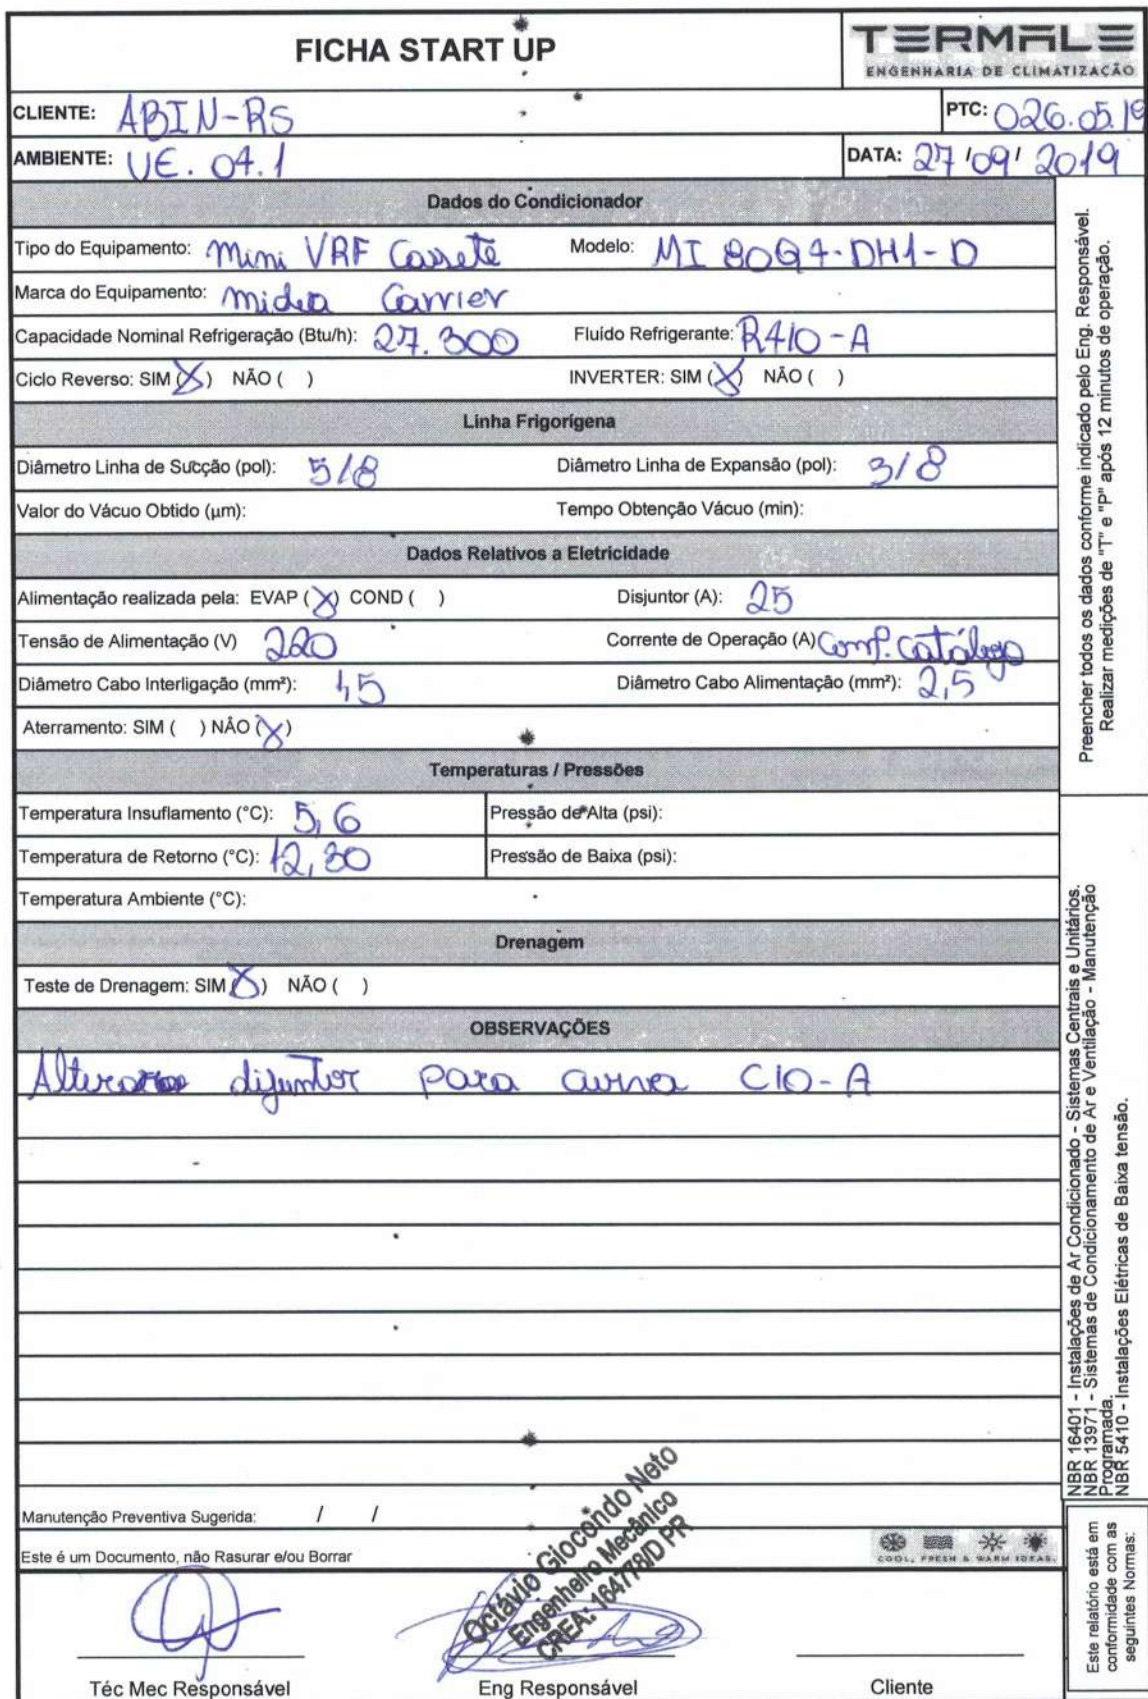 FICHA START UP
TERMALE
ENGENHARIA DE CLIMATIZAÇÃO
CLIENTE: ABIN-RS
PTC: 026.05.19
AMBIENTE: UE. 04.1
DATA: 27/09/2019
Dados do Condicionador
Tipo do Equipamento: Mini VRF Cassete Modelo: MI 80Q4-DH1-D
Marca do Equipamento: Midea Carrier
Capacidade Nominal Refrigeração (Btu/h): 27.300 Fluído Refrigerante: R410-A
Ciclo Reverso: SIM (X) NÃO ( ) INVERTER: SIM (X) NÃO ( )
Linha Frigorígena
Diâmetro Linha de Sucção (pol): 5/8 Diâmetro Linha de Expansão (pol): 3/8
Valor do Vácuo Obtido (µm): Tempo Obtenção Vácuo (min):
Dados Relativos a Eletricidade
Alimentação realizada pela: EVAP (X) COND ( ) Disjuntor (A): 25
Tensão de Alimentação (V) 220 Corrente de Operação (A) Conf. Catálogo
Diâmetro Cabo Interligação (mm²): 1,5 Diâmetro Cabo Alimentação (mm²): 2,5
Aterramento: SIM ( ) NÂO (X)
Temperaturas / Pressões
Temperatura Insuflamento (°C): 5,6 Pressão de Alta (psi):
Temperatura de Retorno (°C): 12,30 Pressão de Baixa (psi):
Temperatura Ambiente (°C):
Drenagem
Teste de Drenagem: SIM (X) NÃO ( )
OBSERVAÇÕES
dijuntor para curva C10-A
Manutenção Preventiva Sugerida: / /
Este é um Documento, não Rasurar e/ou Borrar
COOL, FRESH & WARM IDEAS.
Octávio Giocondo Neto
Engenheiro Mecânico
CREA: 164778/D PR
Téc Mec Responsável Eng Responsável Cliente
Preencher todos os dados conforme indicado pelo Eng. Responsável.
Realizar medições de "T" e "P" após 12 minutos de operação.
NBR 16401 - Instalações de Ar Condicionado - Sistemas Centrais e Unitários.
NBR 13971 - Sistemas de Condicionamento de Ar e Ventilação - Manutenção
Programada.
NBR 5410 - Instalações Elétricas de Baixa tensão.
Este relatório está em
conformidade com as
seguintes Normas: